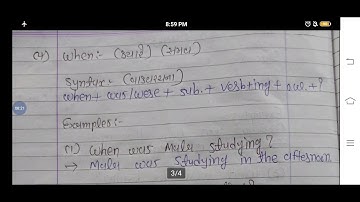 8:59 PM
(4) When:- (ક્યારે) (સમય)
Syntax:- (વાક્યરચના)
when + was/were + sub. + verb+ing + o.w. + ?
00:21
Examples:-
(1) When was Mala studying?
→ Mala was studying in the afternoon
3/4